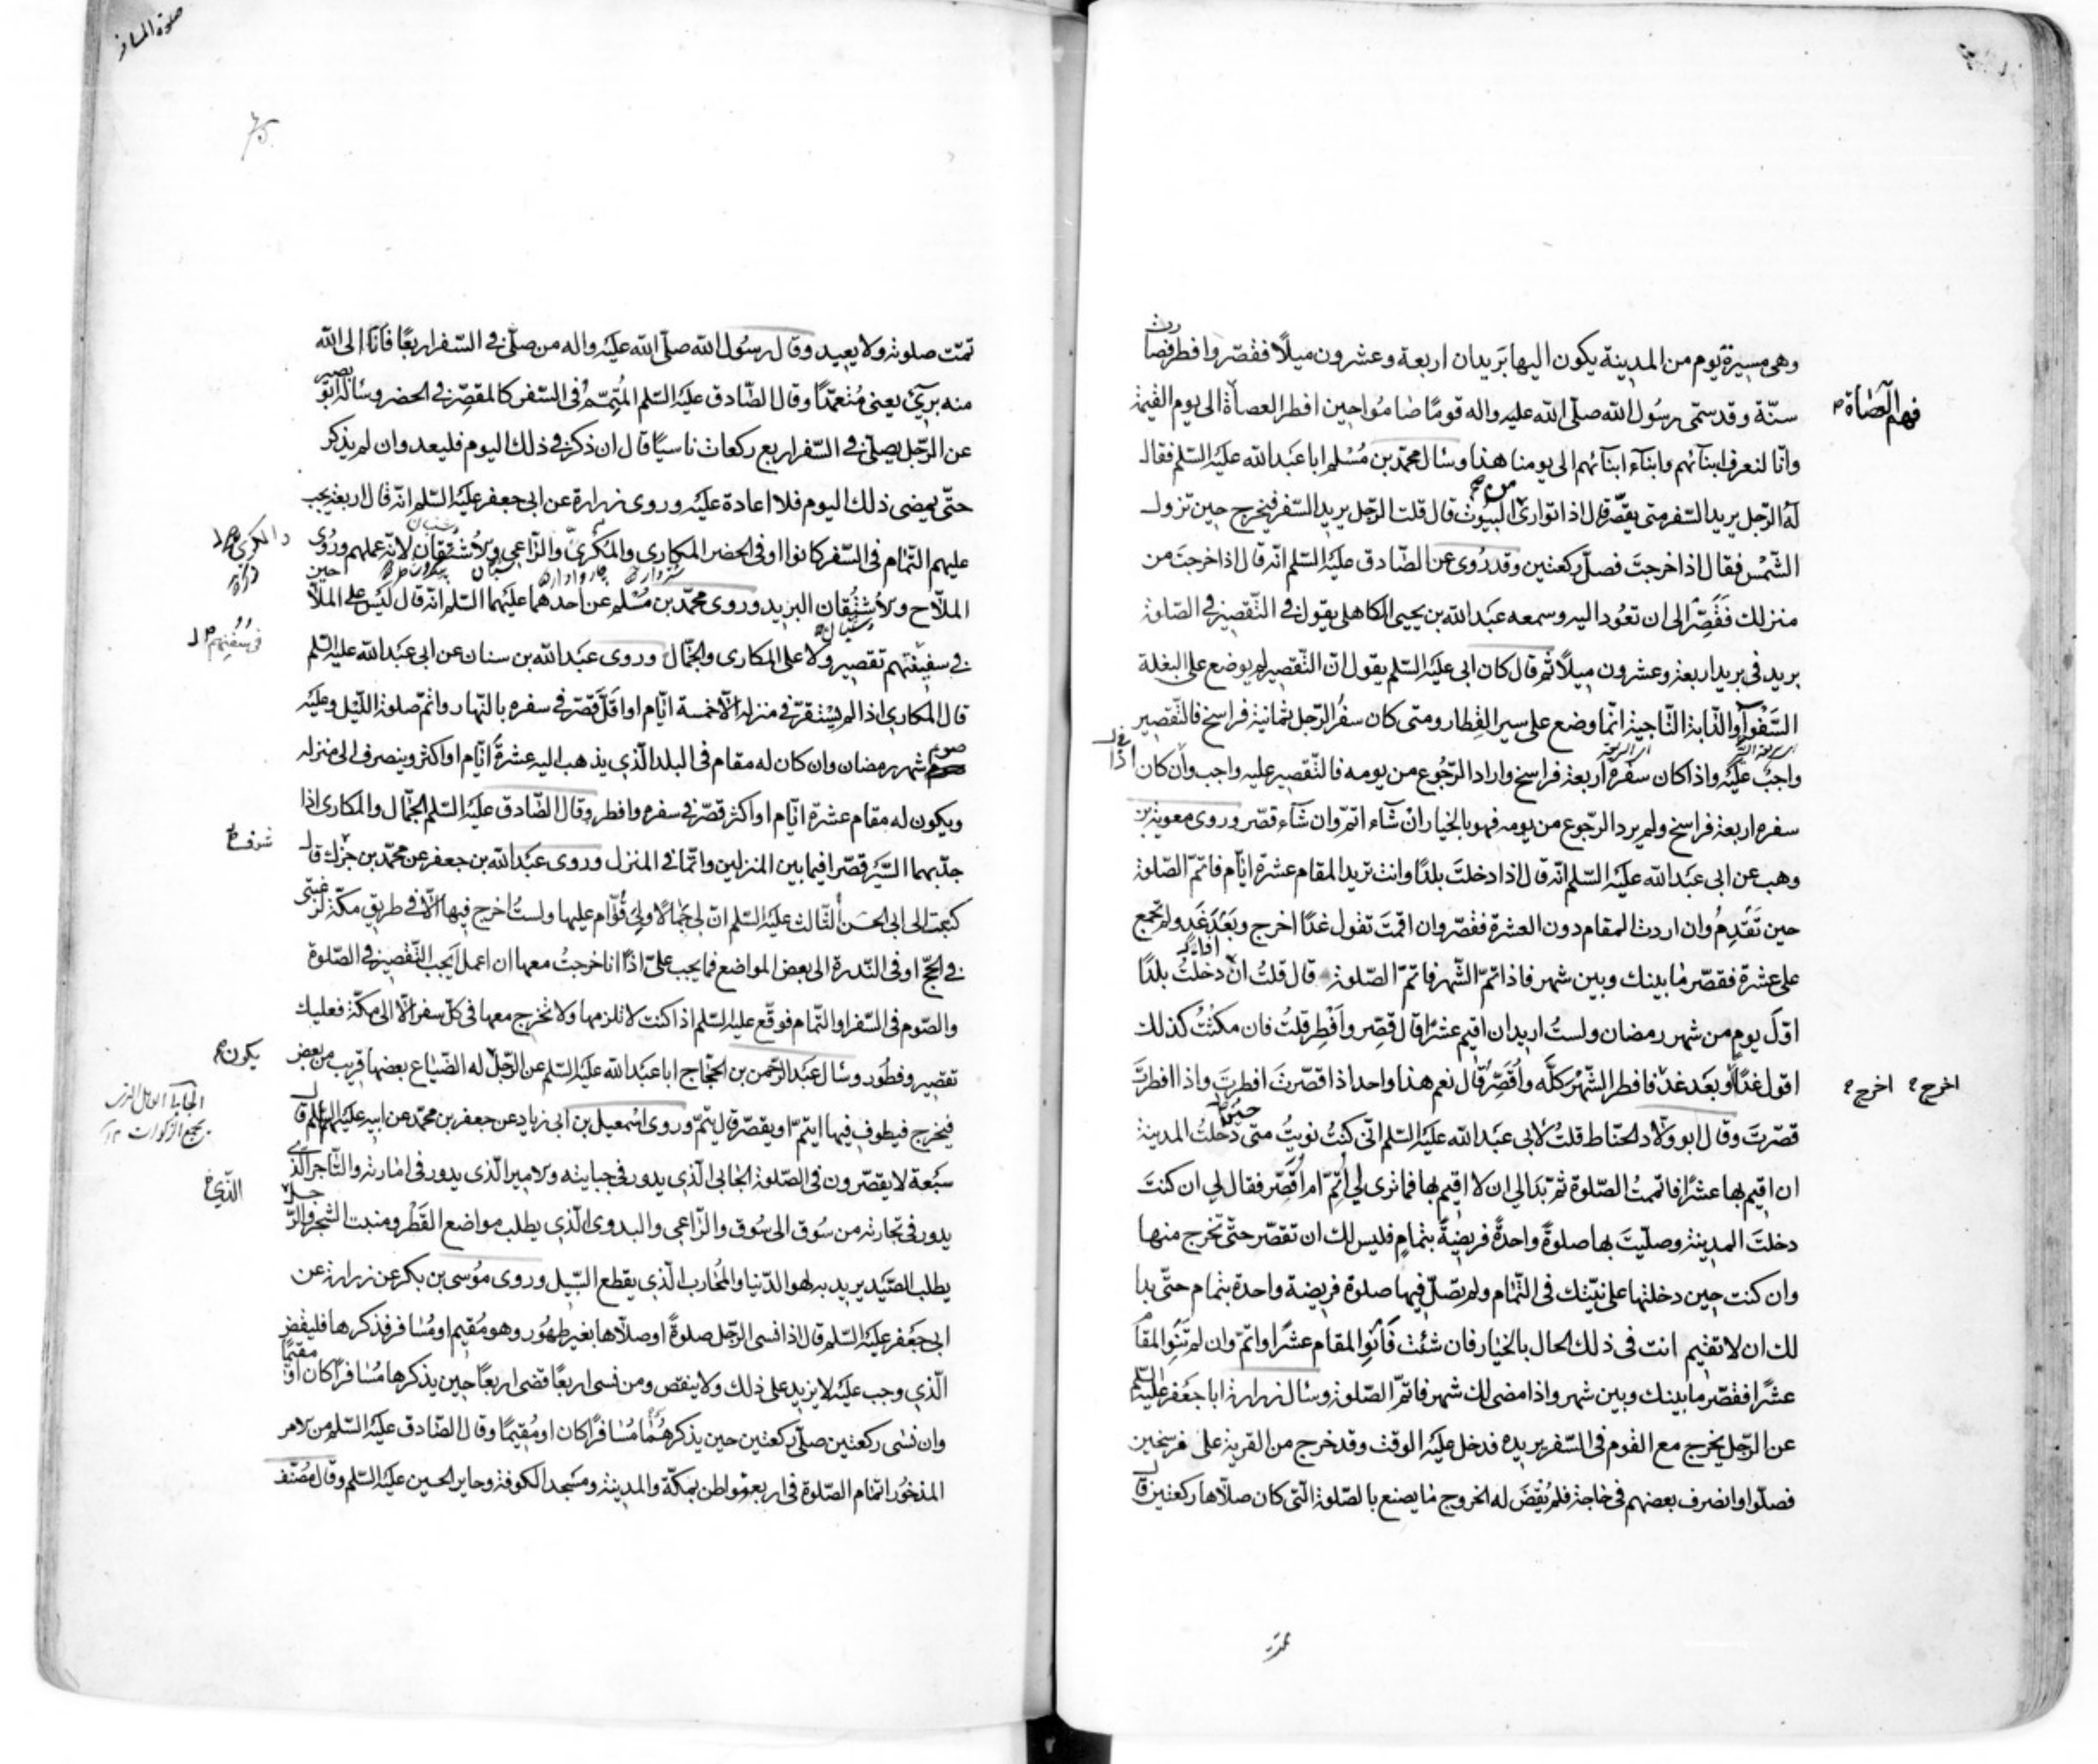 وهى مسيرة يوم من المدينة يكون اليها بريدان اربعة وعشرون ميلًا فقصّر وافطر فصارت
سنّة وقد سمّى رسُول الله صلّى الله عليه واله قومًا صامُوا حين افطر العصاة الى يوم القيمة
فهم العصاة
وانّا لنعرف ابنآئهم وابنآء ابنآئهم الى يومنا هذا وسَال محمّد بن مُسْلم ابا عَبد الله عليَه السّلم فقال
لهُ الرّجل يريد السّفر متى يقصّر قال اذا توارى من البيُوت قال قلت الرّجل يريد السّفر فيخرج حين تزول
الشّمْس فقال اذا خرجتَ فصلّ ركعتين وقد رُوى عن الصّادق عليَه السّلم انّه قال اذا خرجتَ من
منزلك فَقَصِّر الى ان تعوُد اليه وسمعه عبَد الله بن يحيى الكاهلى يقول فى التّقصير فى الصّلوة
بريد فى بريد اربعة وعشرون ميلًا ثم قال كان ابى عليَه السّلم يقول انّ التّقصير لم يوضع على البغلة
السَّفْوآء والدّابة النّاجية انّما وضع على سير القِطار ومتى كان سفرُ الرّجل ثمانية فراسخ فالتّقصير
واجبُ عليَه واذا كان سفرهُ اربعة فراسخ واراد الرّجُوع من يومه فالتّقصير عليه واجب وان كان
سفره اربعة فراسخ ولم يرد الرّجوع من يومه فهو بالخيار انْ شآء اتمّ وان شآء قصّر وروى معوية بن
وهب عن ابى عَبد الله عليَه السّلم انّه قال اذا دخلتَ بلدًا وانت تريد المقام عشرة ايّام فاتمّ الصّلوة
حين تَقْدِمُ وان اردت المقام دون العشرة فقصّر وان اقمتَ تقول غدًا اخرج وبَعْدَ غَدٍ ولم تجمع
على عشرة فقصّر ما بينك وبين شهر فاذا تمّ الشّهر فاتمّ الصّلوة قال قلتُ ان دخلتُ بلدًا
اوّل يومٍ من شهر رمضان ولستُ اريد ان اقيم عشرًا قال قصِّر واَفْطِر قلتُ فان مكثتُ كذلك
اقول غدًا او بعَد غدٍ فافطر الشّهْر كلّه واُقَصِّر قال نعم هذا واحد اذا قصّرتَ افطرتَ واذا افطرتَ
اخرج اخرج
قصّرتَ وقال ابو ولّاد الحنّاط قلتُ لابى عبَد الله عليَه السّلم انّى كنتُ نويتُ متى دخلتُ المدينة
ان اقيم بها عشرًا فاتممتُ الصّلوة ثمّ بَدَا لي ان لا اقيم بها فما ترى لي اُتِمّ ام اُقَصِّر فقال لي ان كنتَ
دخلتَ المدينة وصلّيتَ بها صلوةً واحدةً فريضةً بتمامٍ فليس لك ان تقصّر حتّى تخرج منها
وان كنت حين دخلتها على نيّتك فى التّمام ولم تصلّ فيها صلوة فريضة واحدة بتمام حتّى بدا
لك ان لا تقيم انت فى ذلك الحال بالخيار فان شئت فَانْوِ المقام عشرًا واتمّ وان لم تَنْوِ المقام
عشرًا فقصّر ما بينك وبين شهر واذا مضى لك شهر فاتمّ الصّلوة وسَال زرارة ابا جعَفر عليَه السّلم
عن الرّجل يخرج مع القوم فى السّفر يريده فدخل عليَه الوقت وقد خرج من القرية على فرسخين
فصلّوا وانصرف بعضهم فى حاجة فلم يُقْضَ له الخروج ما يصنع بالصّلوة الّتى كان صلّاها ركعتين قال
تمّت
صلوة المسافر
تمّت صلوته ولا يعيد وقال رسُول الله صلّى الله عليَه واله من صلّى فى السّفر اربعًا فانا الى الله
منه برئ يعنى مُتعمّدًا وقال الصّادق عليَه السّلم المُتِمّ فى السّفر كالمقصّر فى الحضر وسَاله ابو بصير
عن الرّجل يصلّى فى السّفر اربع ركعات ناسيًا قال ان ذكر فى ذلك اليوم فليعد وان لم يذكر
حتّى يمضى ذلك اليوم فلا اعادة عليَه وروى زرارة عن ابى جعفر عليَه السّلم انّه قال اربعة يجب
عليهم التّمام فى السّفر كانوا او فى الحضر المكارى والمُكرى والرّاعى والاشتقان لانّه عملهم وروى
الملّاح والاشتقان البريد وروى محمّد بن مُسْلم عن احدهما عليَهما السّلم انّه قال ليَس على الملّاحين
فى سفينتهم تقصير ولا على المكارى والجمّال وروى عبَد الله بن سنان عن ابى عبَد الله عليَه السّلم
فى سُفُنِهم
قال المكارى اذا لم يستقرّ فى منزله الّا خمسة ايّام او اقَلّ قصّر فى سفره بالنّهار واتمّ صلوة اللّيل وعليَه
صوم شهر رمضان وان كان له مقام فى البلد الّذى يذهب اليه عشرة ايّام او اكثر وينصرف الى منزله
ويكون له مقام عشرة ايّام او اكثر قصّر فى سفره وافطر وقال الصّادق عليَه السّلم الجمّال والمكارى اذا
جدّ بهما السّيَر قصّرا فيما بين المنزلين واتمّا فى المنزل وروى عبَد الله بن جعفر عن محمّد بن جزك قال
كتبت الى ابى الحسَن الثّالث عليَه السّلم انّ لى جِمالًا ولى قُوّام عليها ولستُ اخرج فيها الّا فى طريق مكّة لرغبتى
فى الحجّ او فى النّدرة الى بعض المواضع فما يجب علىّ اذًا انا خرجتُ معها ان اعمل ايَجب التّقصير فى الصّلوة
والصّوم فى السّفر او التّمام فوقّع عليَه السّلم اذا كنت لا تلزمها ولا تخرج معها فى كلّ سفر الّا الى مكّة فعليك
تقصير وفطور وسَال عبَد الرّحمن بن الحجّاج ابا عبَد الله عليَه السّلم عن الرّجل له الضّياع بعضها قريب من بعض
يكون
فيخرج فيطوف فيها ايتمّ او يقصّر قال يتمّ وروى اسْمعيل بن ابى زياد عن جعفر بن محمّد عن ابيه عليَهما السّلم قال
سَبْعة لا يقصّرون فى الصّلوة الجابى الّذى يدور فى جبايته والامير الّذى يدور فى امارته والتّاجر الّذى
الّذى
يدور فى تجارته من سُوق الى سُوق والرّاعى والبدوى الّذى يطلب مواضع القَطْر ومنبت الشّجر والرّجل
يطلب الصّيَد يريد به لهو الدّنيا والمُحارب الّذى يقطع السّبيل وروى موُسى بن بكر عن زرارة عن
ابى جعَفر عليَه السّلم قال اذا نسى الرّجل صلوةً او صلّاها بغير طهُور وهو مُقيم او مُسافر فذكرها فليقض
الّذى وجب عليَه لا يزيد على ذلك ولا ينقص ومن نسى اربعًا قضى اربعًا حين يذكرها مُسافرًا كان او مقيمًا
وان نسَى ركعتين صلّى ركعتين حين يذكرهُما مُسافرًا كان او مُقيمًا وقال الصّادق عليَه السّلم من الامر
المذخُور اتمام الصّلوة فى اربعة مواطن بمكّة والمدينة ومسَجد الكوفة وحاير الحسين عليَه السّلم وقال مُصنّف